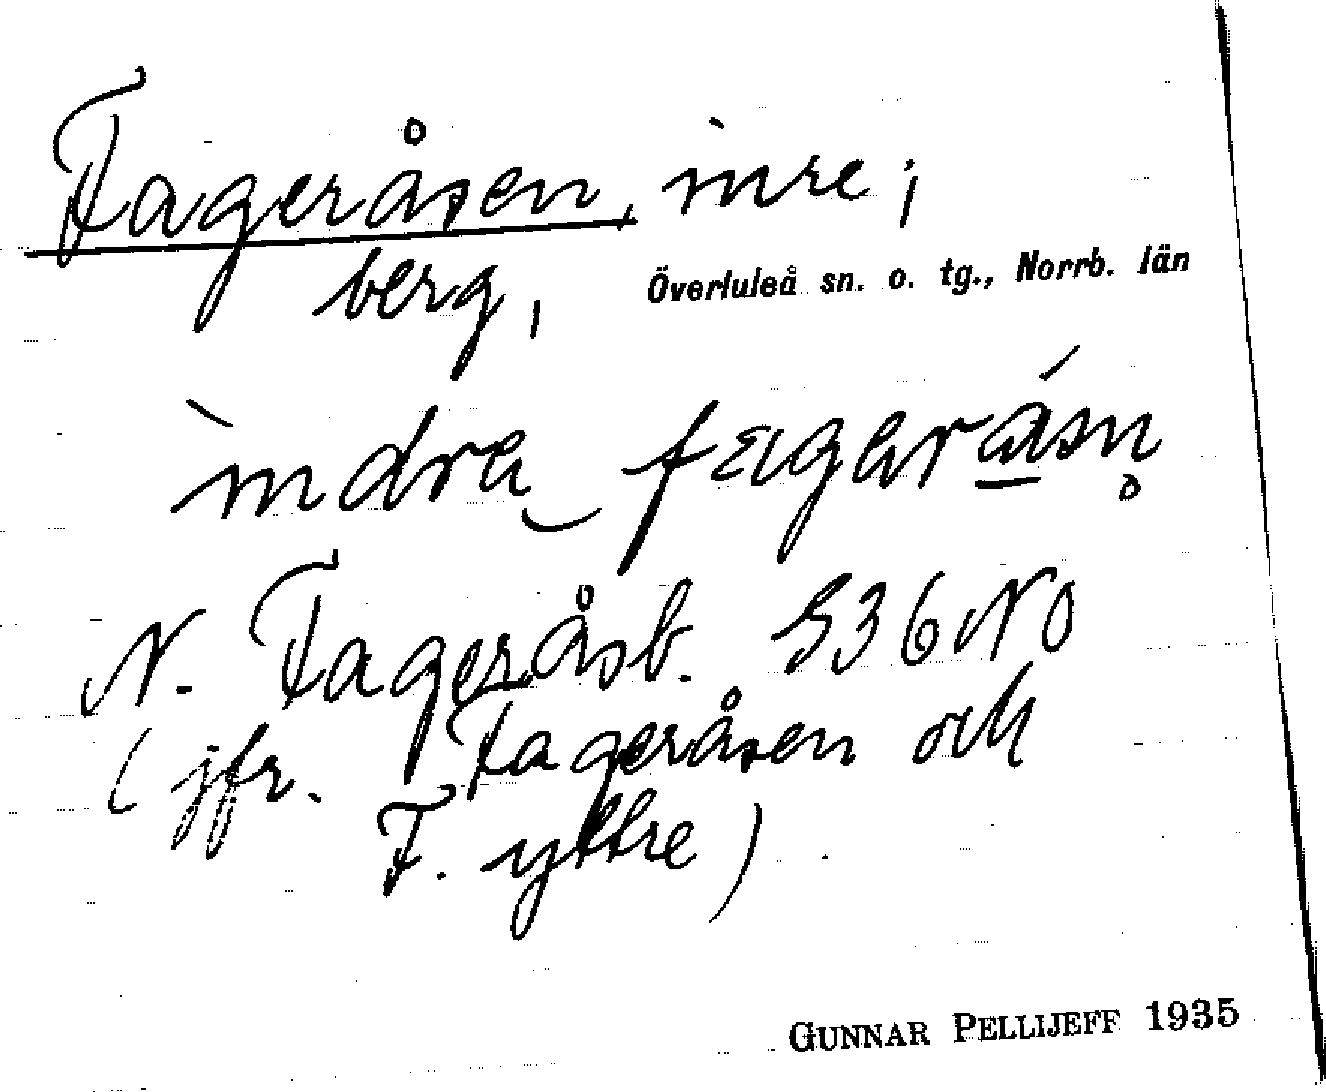 Fageråsen, inre;
berg, Överluleå sn. o. tg., Norrb. län
ìndra‿ fagaråsn̥
N. Fageråsb. S36NO
(jfr. Fageråsen och
F. yttre)
GUNNAR PELLIJEFF 1935